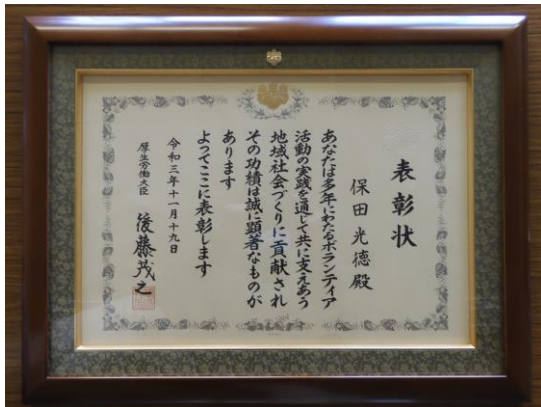 表彰状
保田光德殿
あなたは多年にわたるボランティア
活動の実践を通して共に支えあう
地域社会づくりに貢献され
その功績は誠に顕著なものが
あります
よってここに表彰します
令和三年十一月十九日
厚生労働大臣 後藤茂之